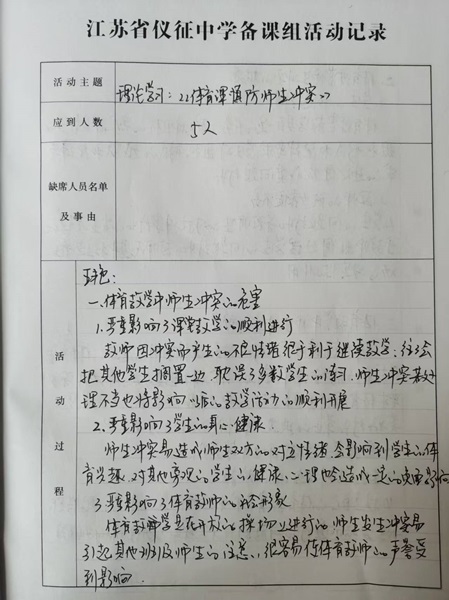 江苏省仪征中学备课组活动记录
活动主题
理论学习:《体育课预防师生冲突》
应到人数
5人
缺席人员名单
及事由
活动过程
一.体育教学中师生冲突的危害
1.严重影响了课堂教学的顺利进行
教师因冲突而产生的不良情绪很不利于继续教学,往往会
把其他学生搁置一边,耽误了多数学生的练习.师生冲突若处
理不当也将影响以后的教学活动的顺利开展
2.严重影响了学生的身心健康
师生冲突易造成师生双方的对立情绪,会影响到学生的体
育兴趣,对其他旁观的学生的健康心理也会造成一定的负面影响
3.严重影响了体育教师的社会形象
体育教学是在开放的操场上进行的,师生发生冲突容易
引起其他班级师生的注意,很容易使体育教师的声誉受
到影响.